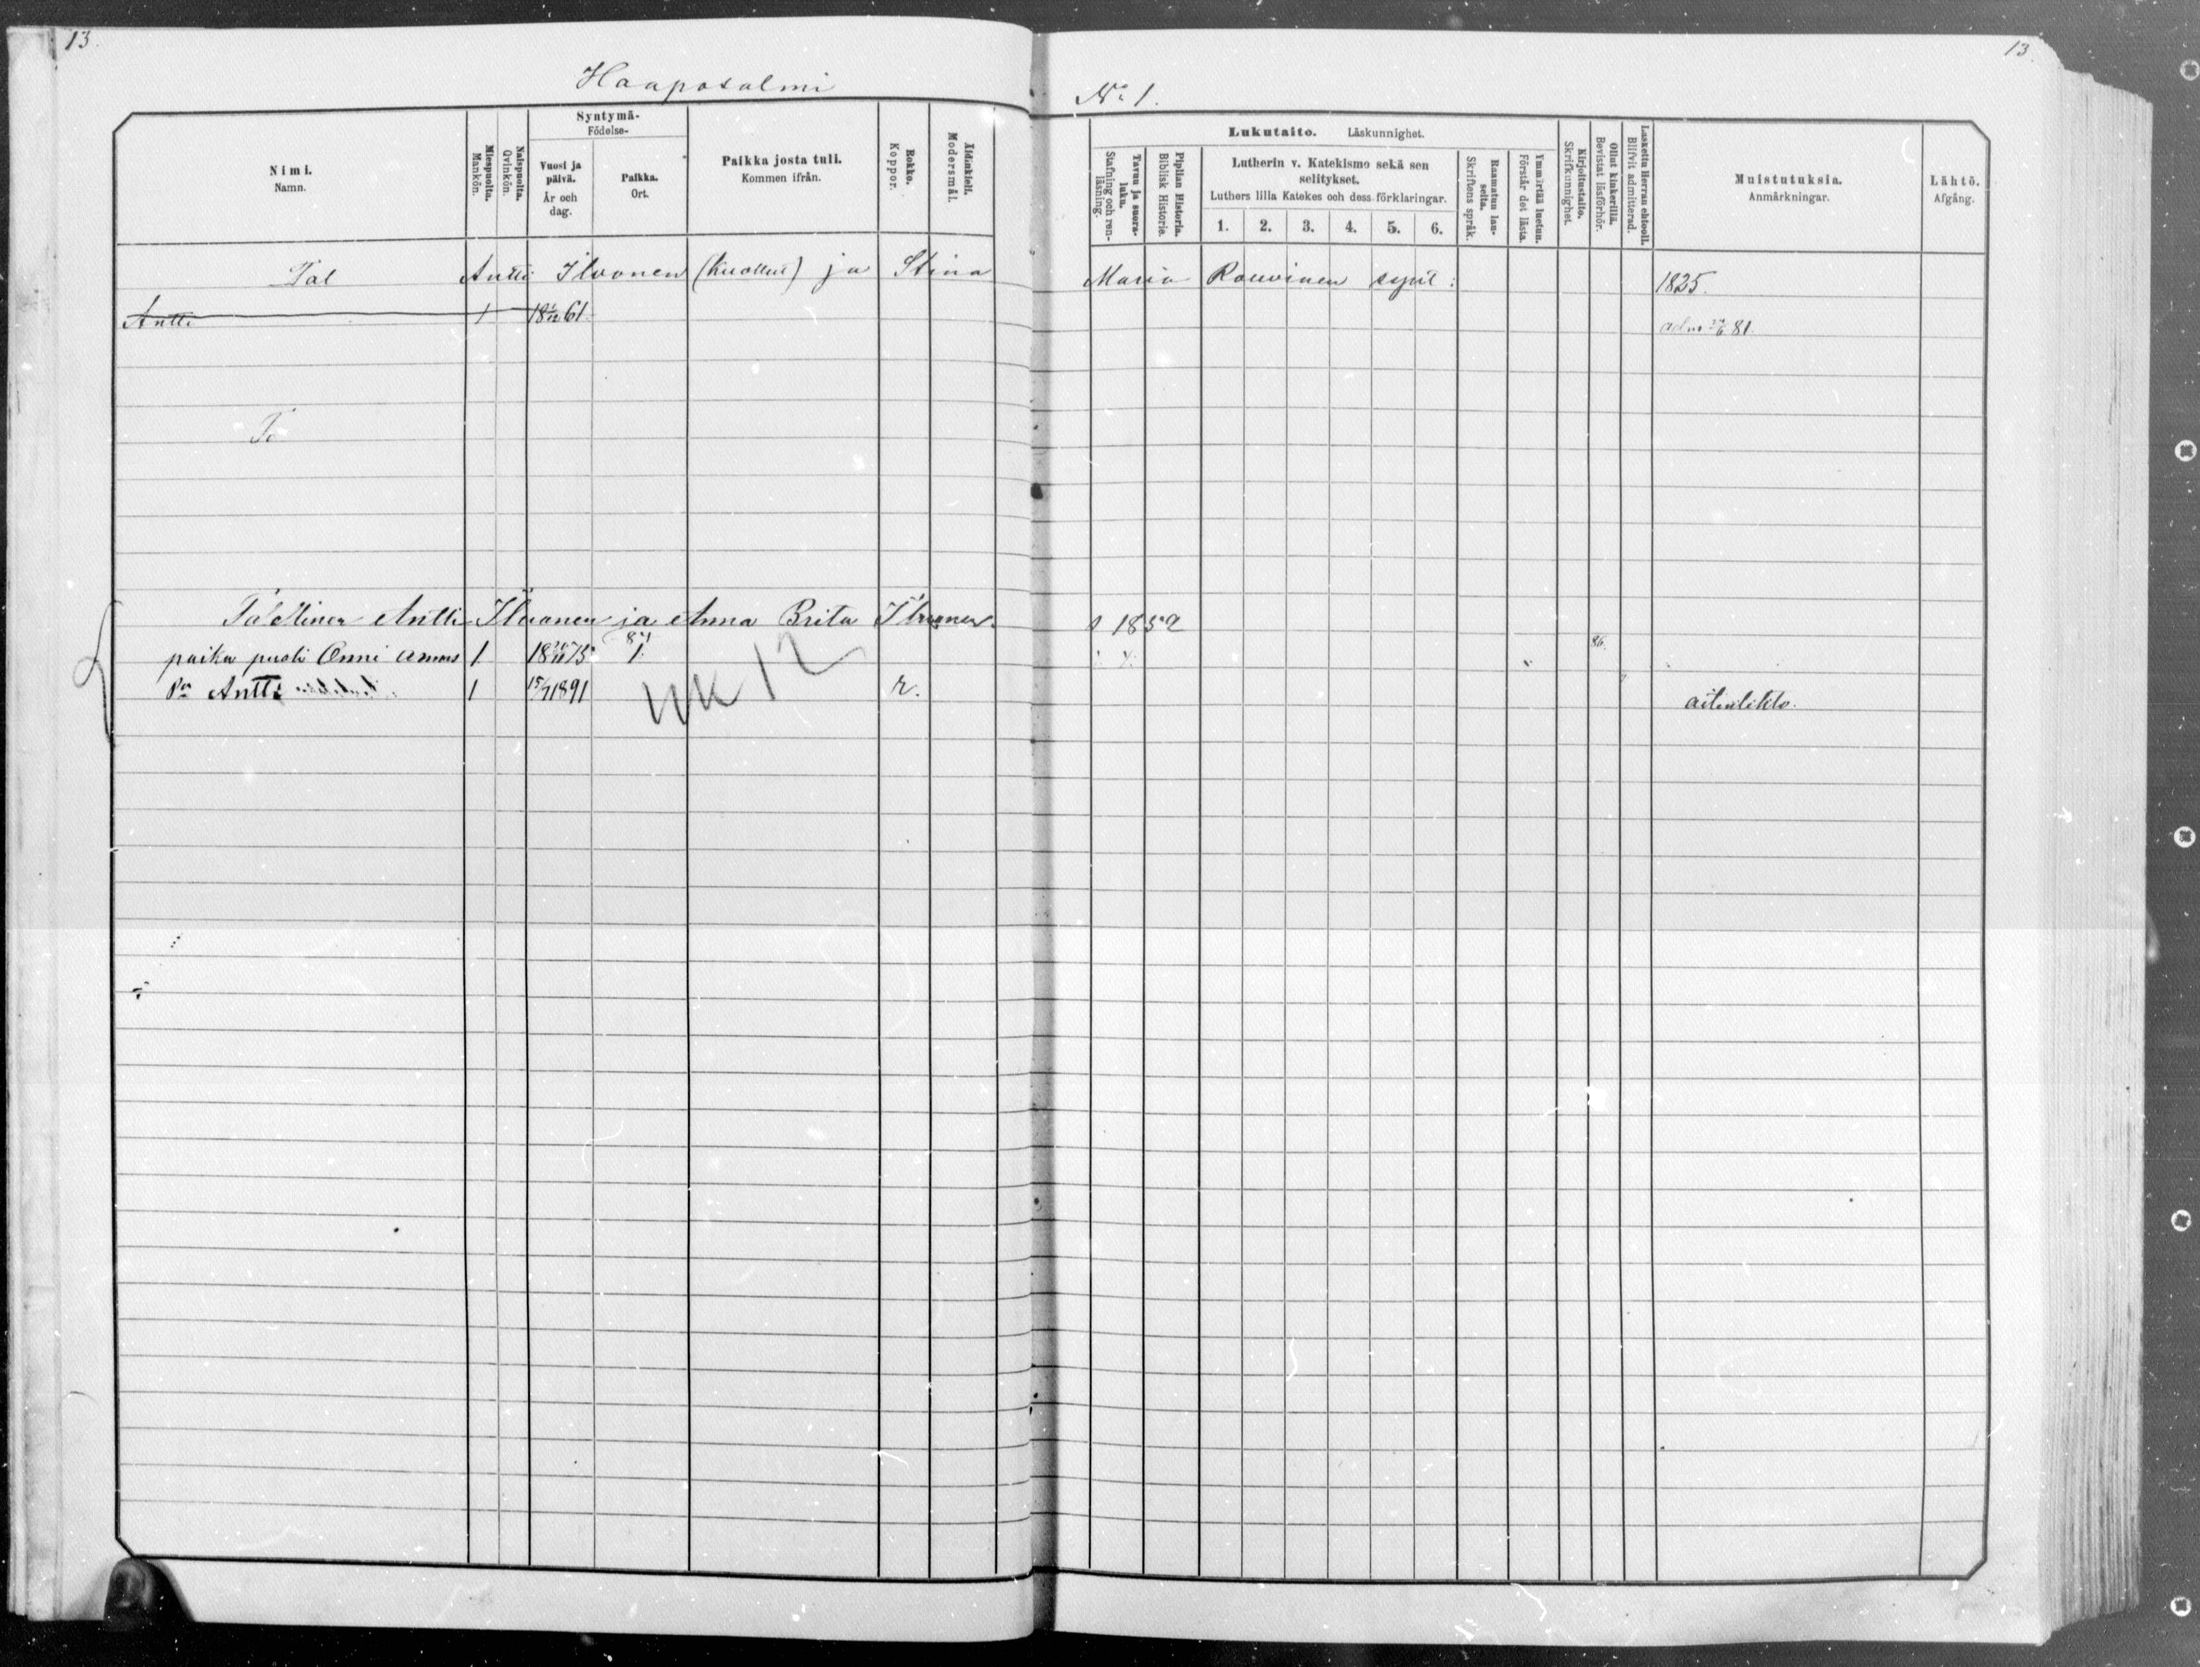 13.
13.
Haaposalmi
No 1.
Nimi.
Namn.
Miespuolta.
Mankön.
Naispuolta.
Qvinkön.
Syntymä-
Födelse-
Vuosi ja päivä.
År och dag.
Paikka.
Ort.
Paikka josta tuli.
Kommen ifrån.
Rokko.
Koppor.
Äidinkieli.
Modersmål.
Lukutaito. Läskunnighet.
Tavuu ja suora-luku.
Stafning och ren-läsning.
Piplian Historia.
Biblisk Historie.
Lutherin v. Katekismo sekä sen
selitykset.
Luthers lilla Katekes och dess förklaringar.
1. 2. 3. 4. 5. 6.
Raamatun lau-seita.
Skriftens språk.
Ymmärtää luetun.
Förstår det lästa.
Kirjoitustaito.
Skrifkunnighet.
Ollut kinkerillä.
Bevistat läsförhör.
Laskettu Herran ehtooll.
Blifvit admitterad.
Muistutuksia.
Anmärkningar.
Lähtö.
Afgång.
Tal Antti Ilvonen (kuollut) ja Stina Maria Rouvinen synt: 1825.
Antti 1 61. adm 81.
To
Antti Ilvonen ja Anna Brita Ilvonen 1852
poika puoli Onni 1 75 86.
Antti 1 15/7 1891 r.
WK 12